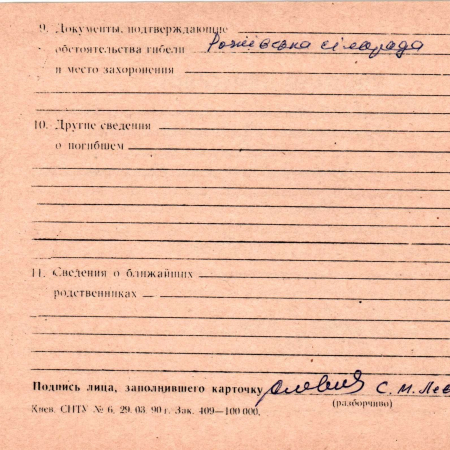 9. Документы, подтверждающие
обстоятельства гибели Рожівська сільрада
и место захоронения
10. Другие сведения
о погибшем
11. Сведения о ближайших
родственниках
Подпись лица, заполнившего карточку С. М. Лев
(разборчиво)
Киев. СПТУ № 6. 29. 03. 90 г. Зак. 409—100 000.